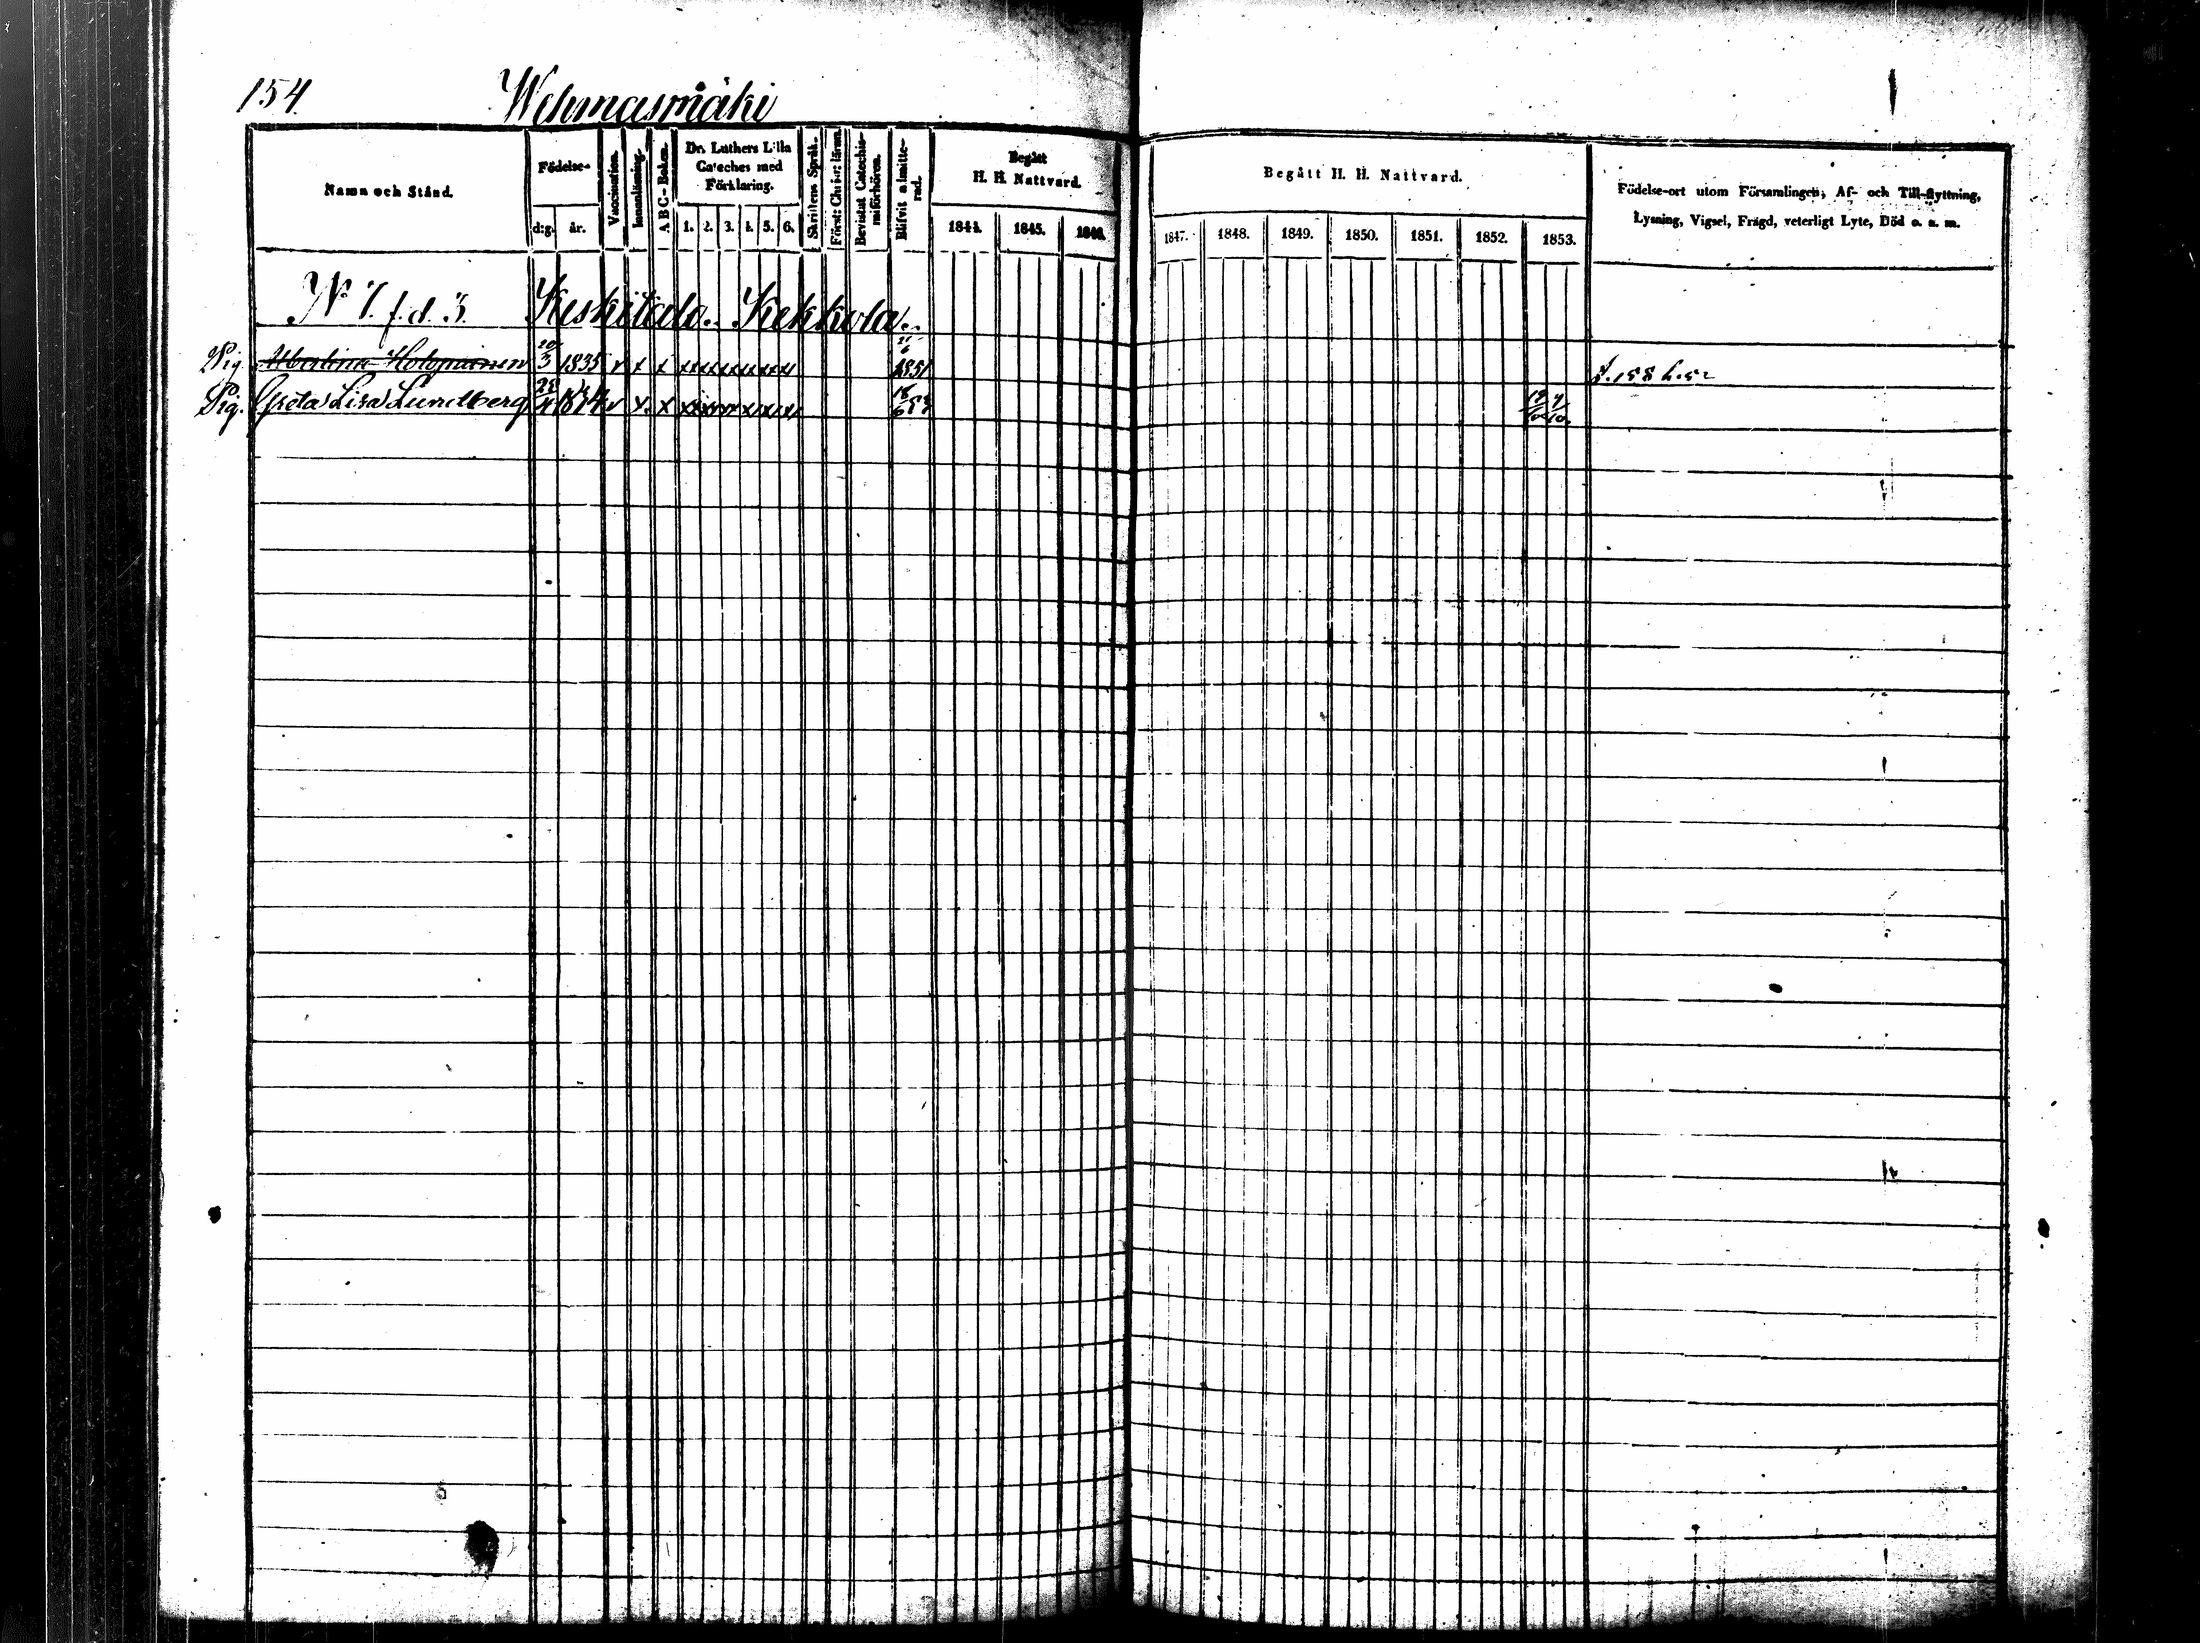 154. Wehmasmäki
Namn och Stånd.
Födelse-
d:g. år.
Vaccination.
Innanläsning.
A B C-Boken.
Dr. Luthers Lilla
Cateches med
Förklaring.
1. 2. 3. 4. 5. 6.
Skriftens Språk.
Förstår Christ: läran.
Bevistat Catechis-
miförhören.
Blifvit admitte-
rad.
Begått
H. H. Nattvard.
1844. 1845. 1846.
Begått H. H. Nattvard.
1847. 1848. 1849. 1850. 1851. 1852. 1853.
Födelse-ort utom Församlingen, Af- och Till-flyttning,
Lysning, Vigsel, Frägd, veterligt Lyte, Död o. s. m.
No 7. f. d. 3. Keskitalo. Kekkola.
Pig. Albertina Holopainen 20/3 1835 v x x 1851 p. 158
Pig. Greta Lisa Lundberg v x. x 18/6 53